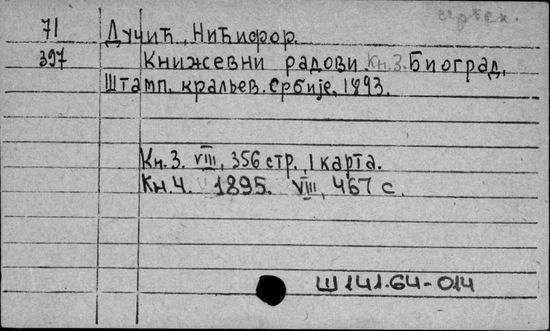 сербск.
71 Дучић, Нићифор.
397 Книжевни радови Кн.3. Биоград,
Штамп. кральев. Србије, 1893.
Кн.3. VIII, 356 стр., 1 карта.
Кн.4. 1895. VIII, 467 с.
Ш 141.64-014